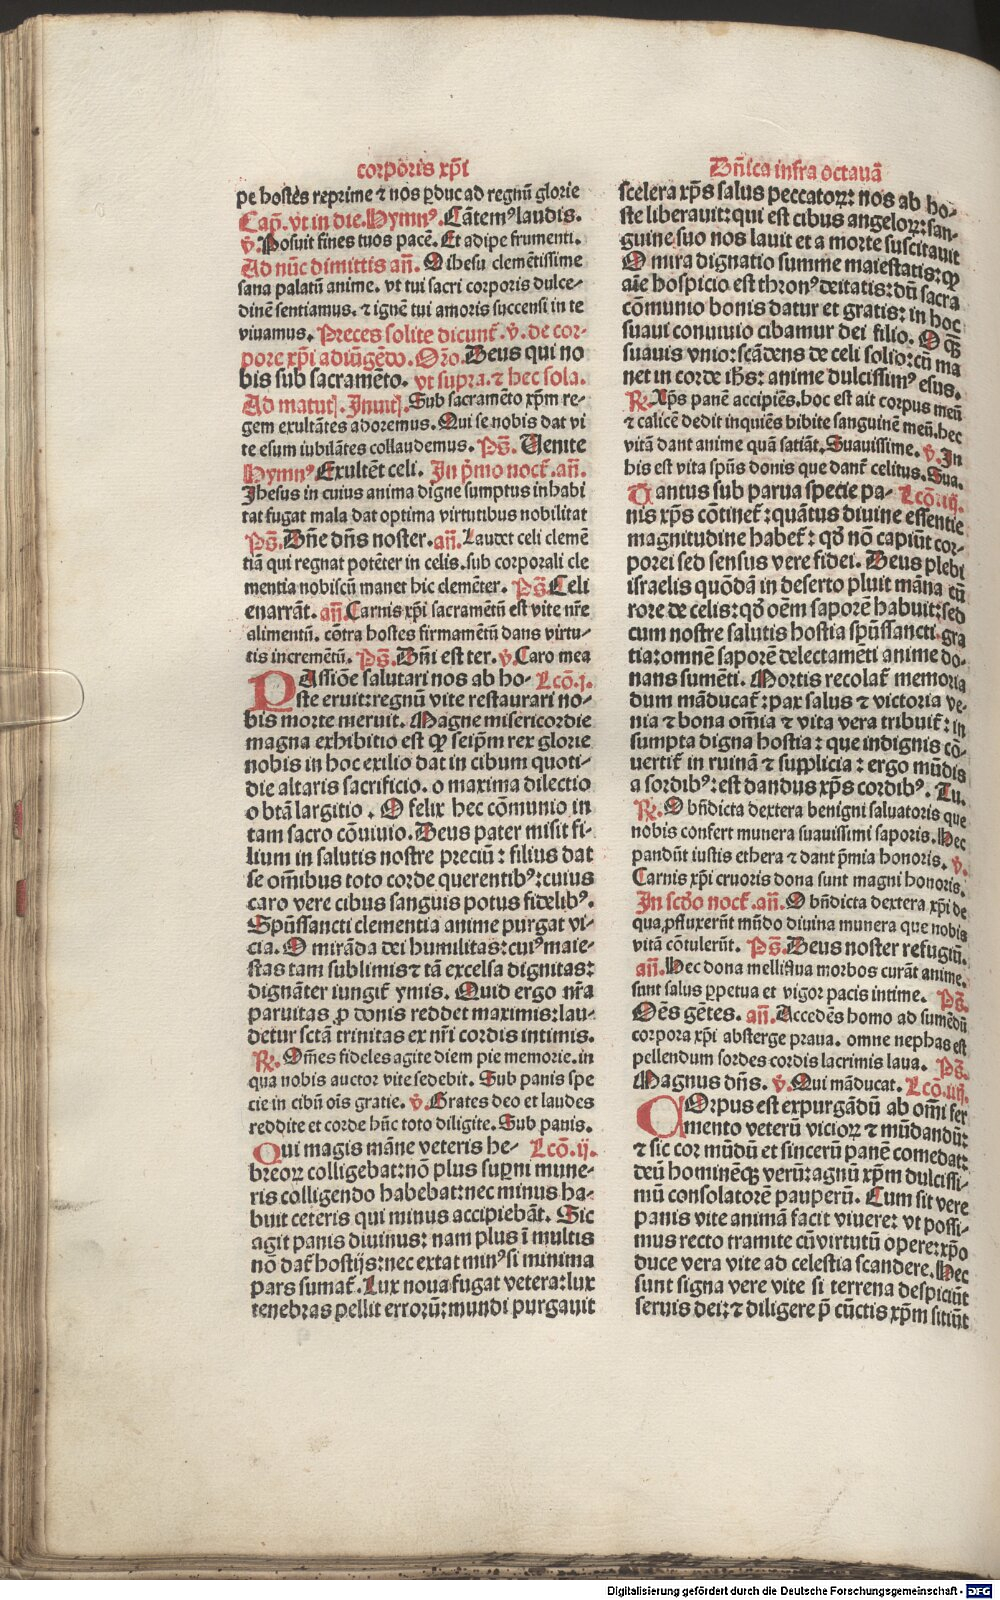 corporis xp̄i
pe hostes reprime ⁊ nos ꝑduc ad regnū glorie
Cap̄. vt in die. Hymnꝰ. Cātemꝰ laudis.
v̄. Posuit fines tuos pacē. Et adipe frumenti.
Ad nūc dimittis añ. O ihesu clemētissime
sana palatū anime. vt tui sacri corporis dulce-
dinē sentiamus. ⁊ ignē tui amoris succensi in te
viuamus. Preces solite dicunt᷑. v̄. de cor-
pore xp̄i adiūgēdo. Oro. Deus qui no
bis sub sacramēto. vt supra. ⁊ hec sola.
Ad matutꝭ. Inuitꝭ. Sub sacramēto xp̄m re-
gem exultātes adoremus. Qui se nobis dat vi
te esum iubilātes collaudemus. Ps̄. Uenite
Hymnꝰ Exultēt celi. In p̄mo noct᷑. añ.
Ihesus in cuius anima digne sumptus inhabi
tat fugat mala dat optima virtutibus nobilitat
Ps̄. Dn̄e dn̄s noster. añ. Laudet celi clemē
tiā qui regnat potēter in celis. sub corporali cle
mentia nobiscū manet hic clemēter. Ps̄. Celi
enarrāt. añ. Carnis xp̄i sacramētū est vite nr̄e
alimentū. cōtra hostes firmamētū dans virtu-
tis incremētū. Ps̄. Dn̄i est ter. v̄. Caro mea
PAssiōe salutari nos ab ho- Lcō. j.
ste eruit: regnū vite restaurari no-
bis morte meruit. Magne misericordie
magna exhibitio est ꝙ seip̄m rex glorie
nobis in hoc exilio dat in cibum quoti-
die altaris sacrificio. o maxima dilectio
o btā largitio. O felix hec cōmunio in
tam sacro cōuiuio. Deus pater misit fi-
lium in salutis nostre preciū: filius dat
se om̄ibus toto corde querentibꝰ: cuius
caro vere cibus sanguis potus fidelibꝰ.
Spūssancti clementia anime purgat vi-
cia. O mirāda dei humilitas: cuiꝰ maie-
stas tam sublimis ⁊ tā excelsa dignitas:
dignāter iungit᷑ ymis. Quid ergo nr̄a
paruitas ꝓ donis reddet maximis: lau-
detur sctā trinitas ex nr̄i cordis intimis.
℟. Om̄es fideles agite diem pie memorie. in
qua nobis auctor vite sedebit. Sub panis spe
cie in cibū oīs gratie. v̄. Grates deo et laudes
reddite et corde hūc toto diligite. Sub panis.
Qui magis māne veteris he- Lcō. ij.
breoꝝ colligebat: nō plus suꝑni mune-
ris colligendo habebat: nec minus ha-
buit ceteris qui minus accipiebāt. Sic
agit panis diuinus: nam plus ī multis
nō dat᷑ hostijs: nec extat minꝰ si minima
pars sumat᷑. Lux noua fugat vetera: lux
tenebras pellit errorū: mundi purgauit
Dn̄ica infra octauā
scelera xp̄s salus peccatoꝝ: nos ab ho-
ste liberauit: qui est cibus angeloꝝ: san-
guine suo nos lauit et a morte suscitauit
O mira dignatio summe maiestatis: ꝙ
aīe hospicio est thronꝰ deitatis: dū sacra
cōmunio bonis datur et gratis: in hoc
suaui conuiuio cibamur dei filio. O ꝙ̄
suauis vnio: scādens de celi solio: cū ma
net in corde ihs̄: anime dulcissimꝰ esus.
℟. Xp̄s panē accipiēs. hoc est ait corpus meū
⁊ calicē dedit inquiēs bibite sanguinē meū. hec
vitā dant anime quā satiāt. Suauissime. v̄. In
his est vita spūs donis que dant᷑ celitus. Sua.
Tantus sub parua specie pa- Lcō. iij.
nis xp̄s cōtinet᷑: quātus diuine essentie
magnitudine habet᷑: qd̄ nō capiūt cor-
porei sed sensus vere fidei. Deus plebi
israelis quōdā in deserto pluit māna cū
rore de celis: qd̄ oēm saporē habuit: sed
cum nostre salutis hostia spūssancti gra
tia: omnē saporē delectamēti anime do-
nans sumēti. Mortis recolat᷑ memoria
dum māducat᷑: pax salus ⁊ victoria ve-
nia ⁊ bona om̄ia ⁊ vita vera tribuit᷑: in
sumpta digna hostia: que indignis cō-
uertit᷑ in ruinā ⁊ supplicia: ergo mūdis
a sordibꝰ: est dandus xp̄s cordibꝰ. Tu.
℟. O bn̄dicta dextera benigni saluatoris que
nobis confert munera suauissimi saporis. Hec
pandūt iustis ethera ⁊ dant p̄mia honoris. v̄.
Carnis xp̄i cruoris dona sunt magni honoris.
In scd̄o noct᷑. añ. O bn̄dicta dextera xp̄i de
qua ꝓfluxerūt mūdo diuina munera que nobis
vitā cōtulerūt. Ps̄. Deus noster refugiū.
añ. Hec dona melliflua morbos curāt anime.
sunt salus ꝑpetua et vigor pacis intime. Ps̄.
Oēs gētes. añ. Accedēs homo ad sumēdū
corpora xp̄i absterge praua. omne nephas est
pellendum sordes cordis lacrimis laua. Ps̄.
Magnus dn̄s. v̄. Qui māducat. Lcō. iiij.
COrpus est expurgādū ab om̄i fer
mento veterū vicioꝝ ⁊ mūdandū:
⁊ sic cor mūdū et sincerū panē comedat:
deū hominēqꝫ verū: agnū xp̄m dulcissi-
mū consolatorē pauperū. Cum sit vere
panis vite animā facit viuere: vt possi-
mus recto tramite cū virtutū opere: xp̄o
duce vera vite ad celestia scandere. Hec
sunt signa vere vite si terrena despiciūt
seruis dei: ⁊ diligere p̄ cūctis xp̄m sitiūt
Digitalisierung gefördert durch die Deutsche Forschungsgemeinschaft - DFG